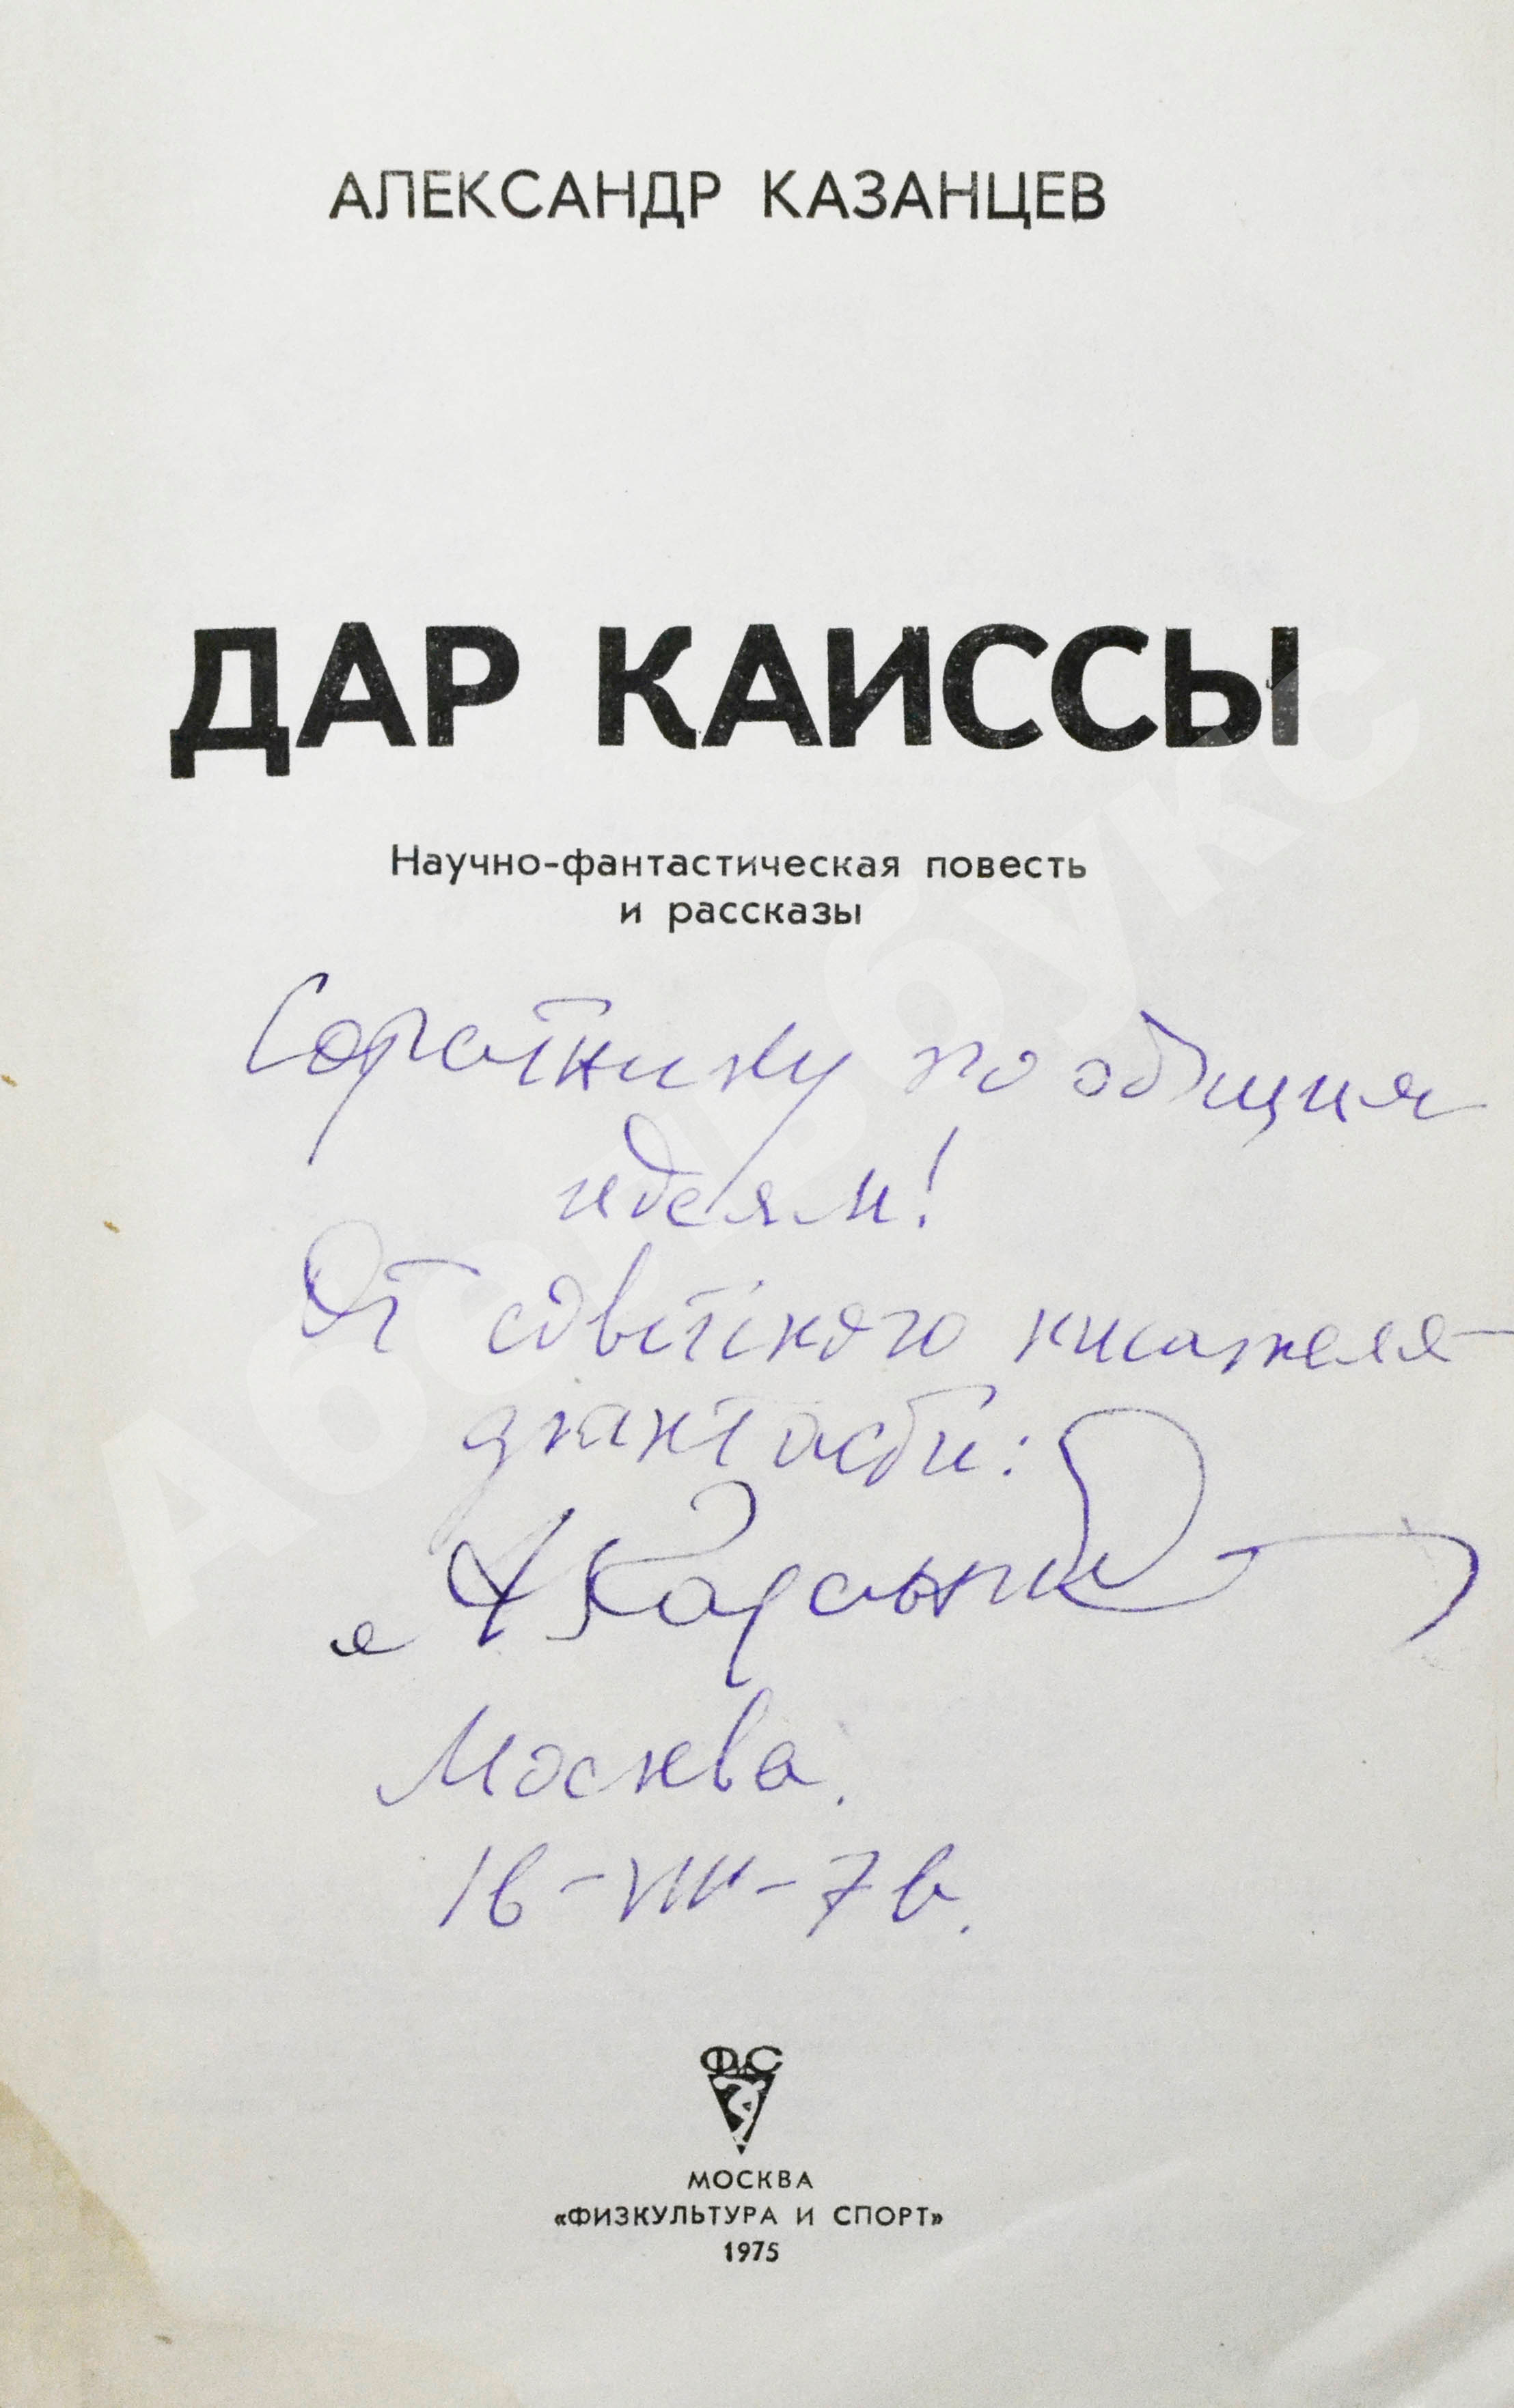 АЛЕКСАНДР КАЗАНЦЕВ
ДАР КАИССЫ
Научно-фантастическая повесть
и рассказы
Соратнику по общим
идеям!
От советского писателя-
фантаста:
А Казанцев
Москва.
16-VIII-76.
ФиС
МОСКВА
«ФИЗКУЛЬТУРА И СПОРТ»
1975